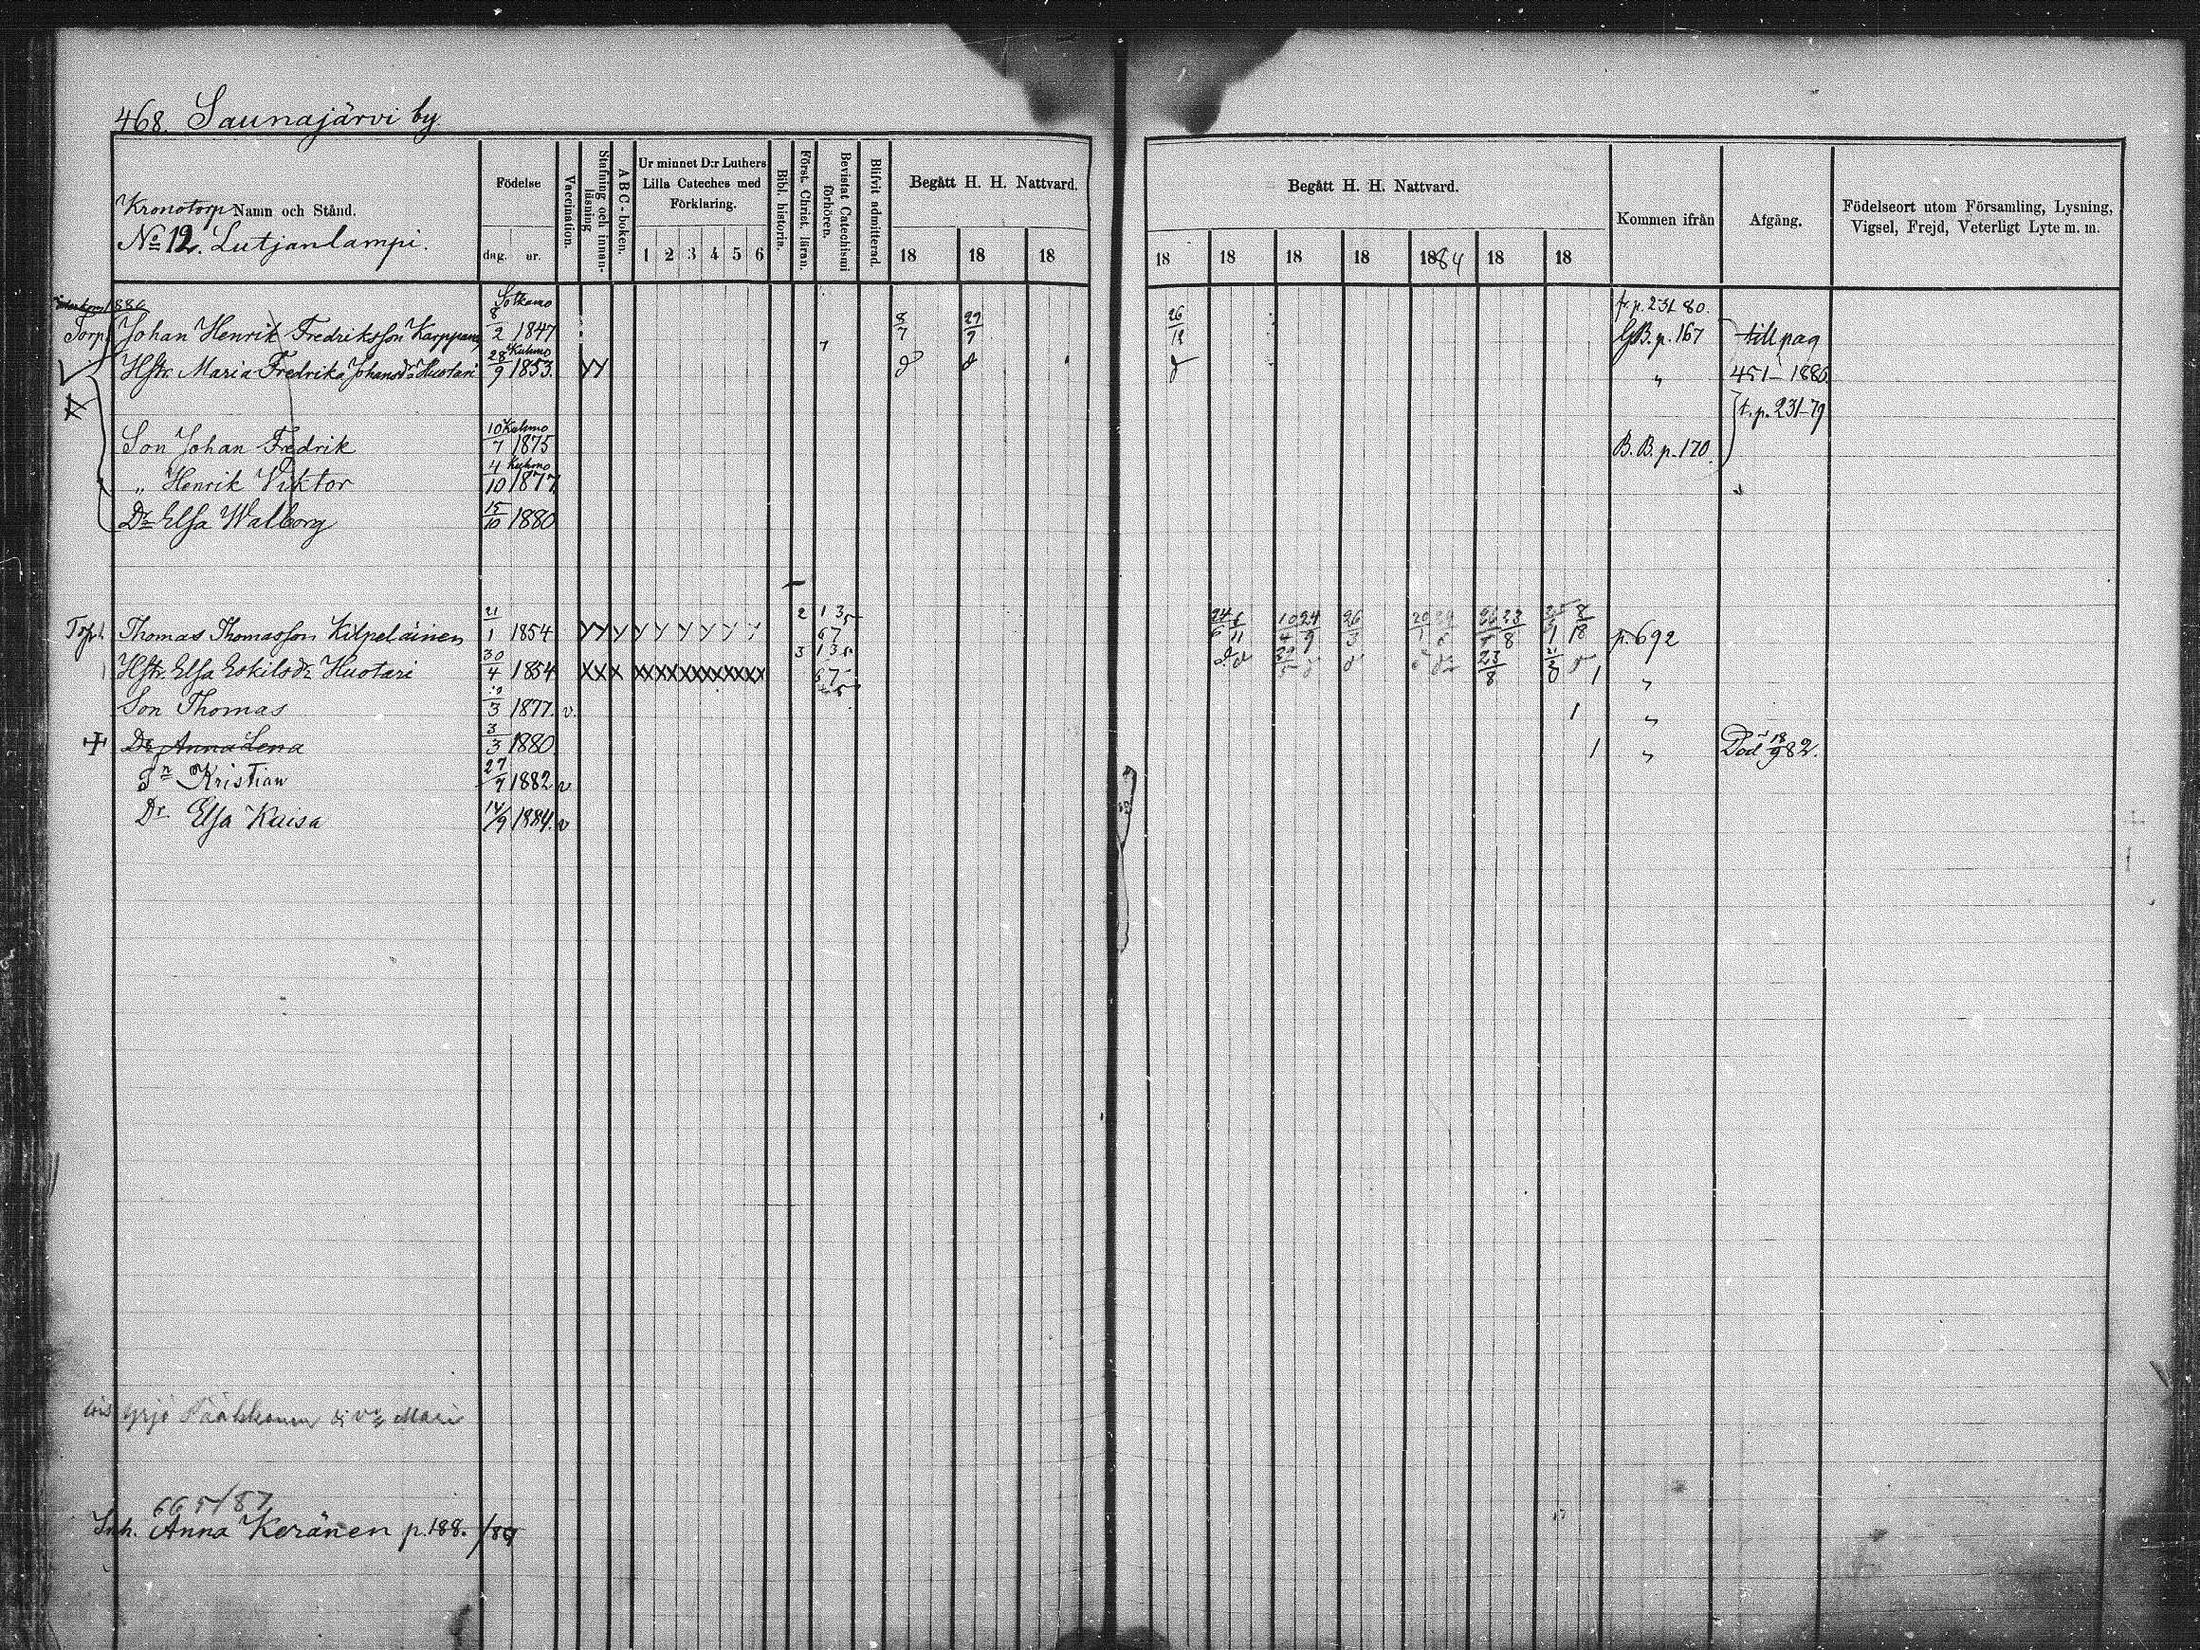 468. Saunajärvi by
Kronotorp Namn och Stånd.
No 12. Lutjanlampi.
Födelse
dag. år.
Vaccination.
Stafning och innanläsning
ABC-boken.
Ur minnet D:r Luthers Lilla Cateches med Förklaring.
1 2 3 4 5 6
Bibl. historia.
Först. Christ. läran.
Bevistat Catechismi förhören.
Blifvit admitterad.
Begått H. H. Nattvard.
18 18 18
Begått H. H. Nattvard.
18 18 18 18 1884 18 18
Kommen ifrån
Afgång.
Födelseort utom Församling, Lysning, Vigsel, Frejd, Veterligt Lyte m. m.
Sotkamo fr. p. 231 80.
Torp. Johan Henrik Fredriksson Karppanen 8/2 1847 8/7 29/9 26/12 GB. p. 167 till pag
Kuhmo
Hstr. Maria Fredrika Johansdr Huotari 28/9 1853. YY " 451 - 1886
t. p. 231-79
Kuhmo
Son Johan Fredrik 10/7 1875 B. B. p. 170.
Kuhmo
" Henrik Viktor 4/10 1877
Dr Elsa Walborg 15/10 1880
Torp. Thomas Thomasson Kilpeläinen 21/1 1854 p. 692
Hstr. Elsa Eskilsdr Huotari 30/4 1854 XXX XXXXXXXXXXX "
Son Thomas 1877. v. 1 "
Dr Anna Lena 3/3 1880 1 " Död 18/9 82.
Sn Kristian 27/7 1882 v
Dr Elsa Kuisa 14/9 1884. v
Yrjö Mari
665/87
Inh. Anna Keränen p. 188. /89